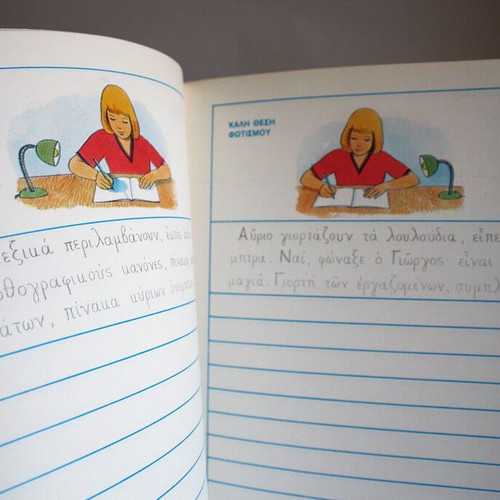 εξικά περιλαμβάνουν,
θογραφικούς κανόνες, πίνακα
άτων, πίνακα κύριων
ΚΑΛΗ ΘΕΣΗ
ΦΩΤΙΣΜΟΥ
Αὔριο γιορτάζουν τά λουλούδια, εἶπε
μπρα. Ναί, φώναξε ὁ Γιῶργος εἶναι
μαγιά. Γιορτή τῶν ἐργαζομένων, συμπλ